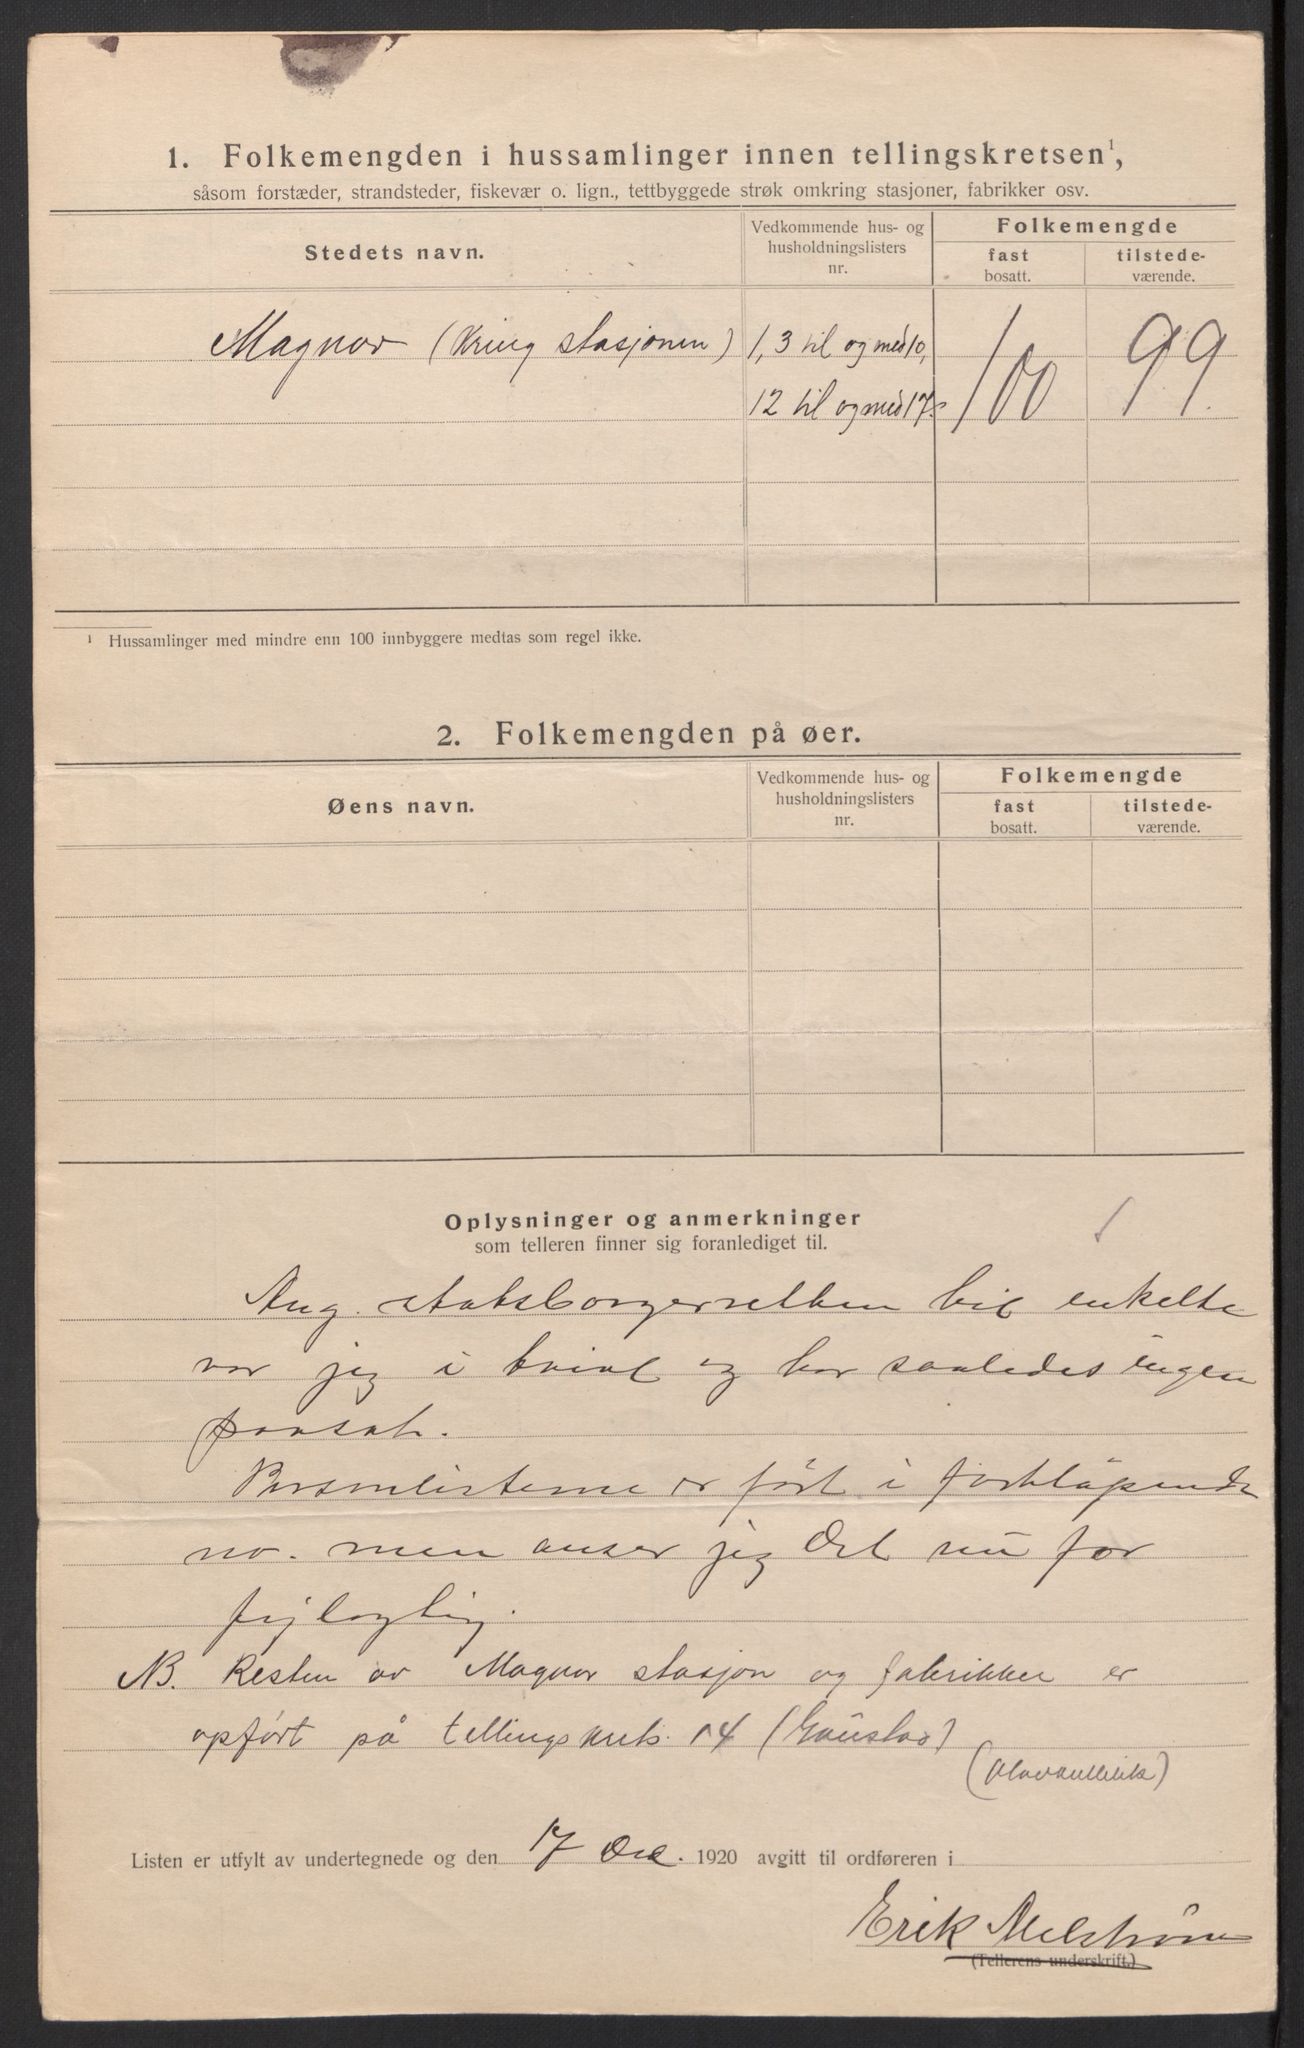 1. Folkemengden i hussamlinger innen tellingskretsen¹,
såsom forstæder, strandsteder, fiskevær o. lign., tettbyggede strøk omkring stasjoner, fabrikker osv.
Stedets navn.
Vedkommende hus- og husholdningslisters nr.
Folkemengde
fast bosatt.
tilstede-værende.
Magnor (Kring stasjonen) 1, 3 til og med 10, 100 99
12 til og med 17.
¹ Hussamlinger med mindre enn 100 innbyggere medtas som regel ikke.
2. Folkemengden på øer.
Øens navn.
Vedkommende hus- og husholdningslisters nr.
Folkemengde
fast bosatt.
tilstede-værende.
Oplysninger og anmerkninger
som telleren finner sig foranlediget til.
Ang. statsborgerretten til enkelte
var jeg i tvivl og har saaledes ingen
paasat.
Personlisterne er ført i fortløpende
no. men anser jeg det nu for
feilagtig.
NB. Resten av Magnor stasjon og fabrikker er
opført på tellingskrets 14 (Gaustad)
Listen er utfylt av undertegnede og den 17 Des. 1920 avgitt til ordføreren i
Erik Melstrøm
(Tellerens underskrift.)